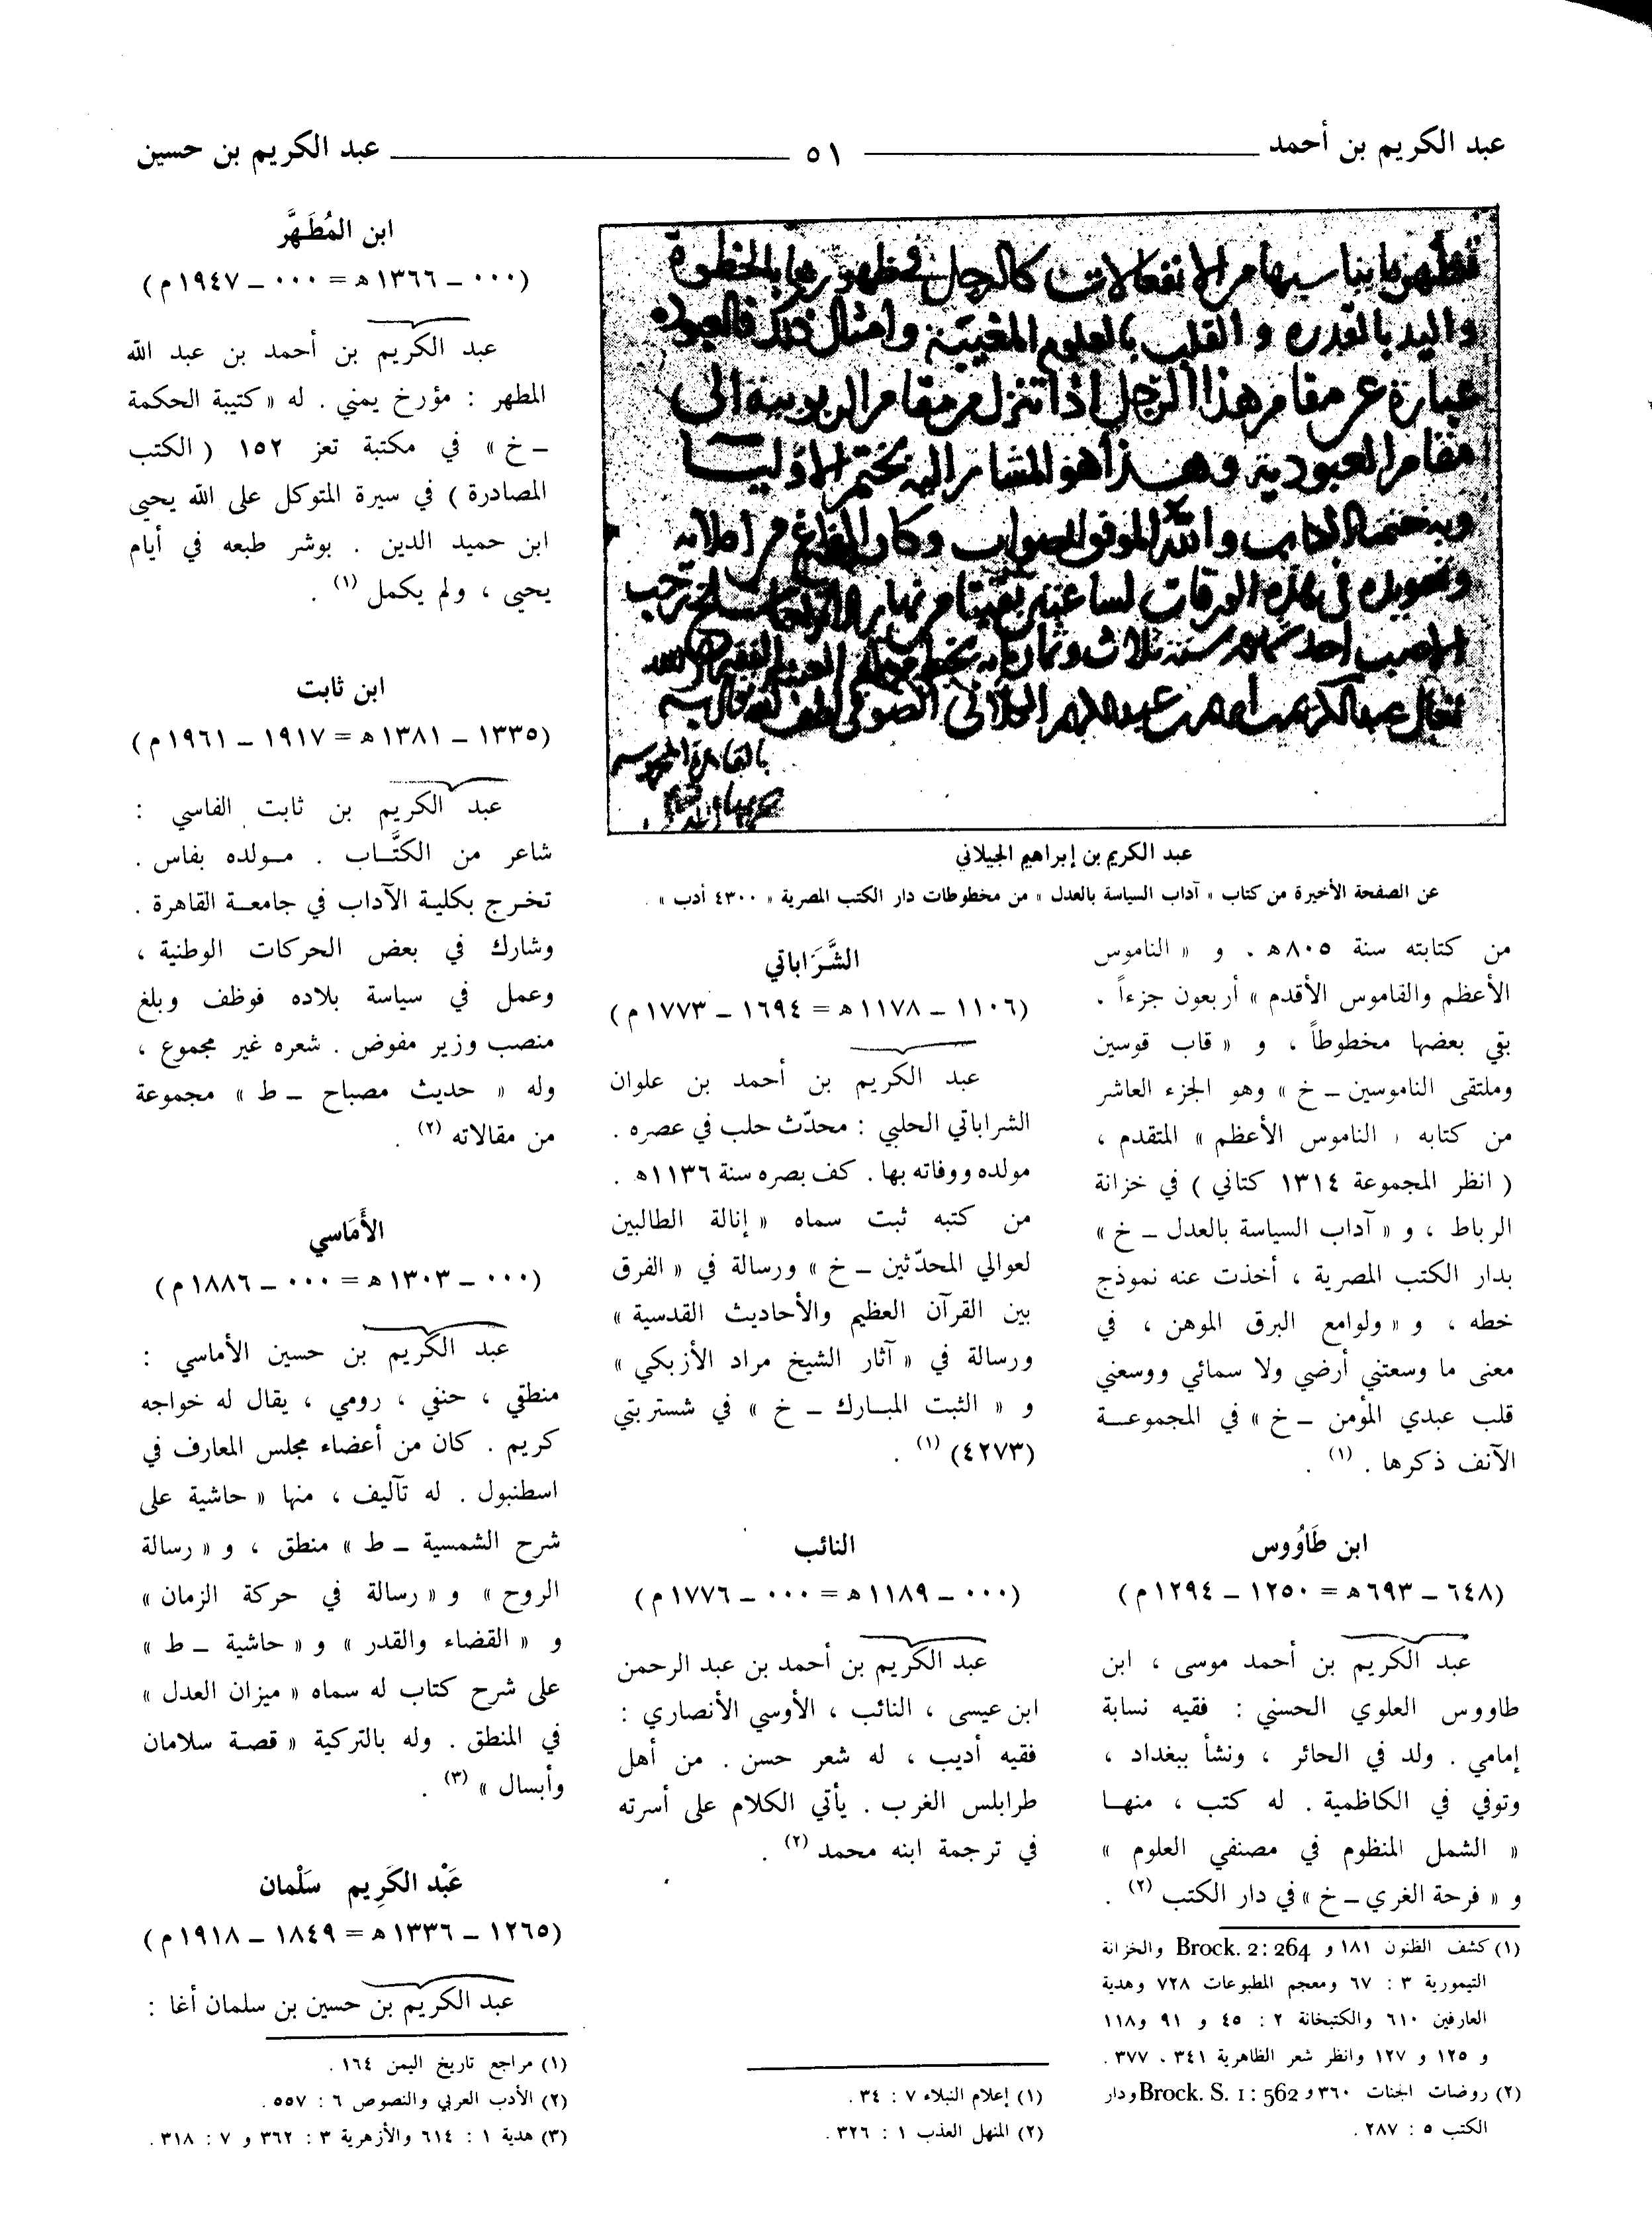 عبد الكريم بن أحمد ٥١ عبد الكريم بن حسين
عبد الكريم بن إبراهيم الجيلاني
عن الصفحة الأخيرة من كتاب « آداب السياسة بالعدل » من مخطوطات دار الكتب المصرية « ٤٣٠٠ أدب » .
من كتابته سنة ٨٠٥ھ . و « الناموس
الأعظم والقاموس الأقدم » أربعون جزءاً .
بقي بعضها مخطوطاً ، و « قاب قوسين
وملتقى الناموسين ـ خ » وهو الجزء العاشر
من كتابه « الناموس الأعظم » المتقدم ،
( انظر المجموعة ١٣١٤ كتاني ) في خزانة
الرباط ، و « آداب السياسة بالعدل ـ خ »
بدار الكتب المصرية ، أخذت عنه نموذج
خطه ، و « ولوامع البرق الموهن ، في
معنى ما وسعتني أرضي ولا سمائي ووسعني
قلب عبدي المؤمن ـ خ » في المجموعـــة
الآنف ذكرها . (١) .
ابن طَاوُوس
(٦٤٨ ـ ٦٩٣ھ = ١٢٥٠ ـ ١٢٩٤م)
عبد الكريم بن أحمد موسى ، ابن
طاووس العلوي الحسني : فقيه نسابة
إمامي . ولد في الحائر ، ونشأ ببغداد ،
وتوفي في الكاظمية . له كتب ، منهــا
« الشمل المنظوم في مصنفي العلوم »
و « فرحة الغري ـ خ » في دار الكتب (٢) .
(١) كشف الظنون ١٨١ و Brock. 2: 264 والخزانة
التيمورية ٣ : ٦٧ ومعجم المطبوعات ٧٢٨ وهدية
العارفين ٦١٠ والكتبخانة ٢ : ٤٥ و ٩١ و١١٨
و ١٢٥ و ١٢٧ وانظر شعر الظاهرية ٣٤١ ، ٣٧٧ .
(٢) روضات الجنات ٣٦٠ و Brock. S. 1: 562 ودار
الكتب ٥ : ٢٨٧ .
الشَّرَاباتي
(١١٠٦ ـ ١١٧٨ھ = ١٦٩٤ ـ ١٧٧٣م)
عبد الكريم بن أحمد بن علوان
الشراباتي الحلبي : محدّث حلب في عصره .
مولده ووفاته بها . كف بصره سنة ١١٣٦ھ .
من كتبه ثبت سماه « إنالة الطالبين
لعوالي المحدّثين ـ خ » ورسالة في « الفرق
بين القرآن العظيم والأحاديث القدسية »
ورسالة في « آثار الشيخ مراد الأزبكي »
و « الثبت المبـارك ـ خ » في شستربتي
(٤٢٧٣) (١) .
النائب
(٠٠٠ ـ ١١٨٩ھ = ٠٠٠ ـ ١٧٧٦م)
عبد الكريم بن أحمد بن عبد الرحمن
ابن عيسى ، النائب ، الأوسي الأنصاري :
فقيه أديب ، له شعر حسن . من أهل
طرابلس الغرب . يأتي الكلام على أسرته
في ترجمة ابنه محمد (٢) .
(١) إعلام النبلاء ٧ : ٣٤ .
(٢) المنهل العذب ١ : ٣٢٦ .
ابن المُطَهَّر
(٠٠٠ ـ ١٣٦٦ھ = ٠٠٠ ـ ١٩٤٧م)
عبد الكريم بن أحمد بن عبد الله
المطهر : مؤرخ يمني . له « كتيبة الحكمة
ـ خ » في مكتبة تعز ١٥٢ ( الكتب
المصادرة ) في سيرة المتوكل على الله يحيى
ابن حميد الدين . بوشر طبعه في أيام
يحيى ، ولم يكمل (١) .
ابن ثابت
(١٣٣٥ ـ ١٣٨١ھ = ١٩١٧ ـ ١٩٦١م)
عبد الكريم بن ثابت الفاسي :
شاعر من الكتَّـاب . مـولده بفاس .
تخـرج بكليـة الآداب في جامعـة القاهرة .
وشارك في بعض الحركات الوطنية ،
وعمل في سياسة بلاده فوظف وبلغ
منصب وزير مفوض . شعره غير مجموع ،
وله « حديث مصباح ـ ط » مجموعة
من مقالاته (٢) .
الأَمَاسي
(٠٠٠ ـ ١٣٠٣ھ = ٠٠٠ ـ ١٨٨٦م)
عبد الكريم بن حسين الأماسي :
منطقي ، حنفي ، رومي ، يقال له خواجه
كريم . كان من أعضاء مجلس المعارف في
اسطنبول . له تآليف ، منها « حاشية على
شرح الشمسية ـ ط » منطق ، و « رسالة
الروح » و « رسالة في حركة الزمان »
و « القضاء والقدر » و « حاشية ـ ط »
على شرح كتاب له سماه « ميزان العدل »
في المنطق . وله بالتركية « قصـة سلامان
وأبسال » (٣) .
عَبْد الكَرِيم سَلْمان
(١٢٦٥ ـ ١٣٣٦ھ = ١٨٤٩ ـ ١٩١٨م)
عبد الكريم بن حسين بن سلمان أغا :
(١) مراجع تاريخ اليمن ١٦٤ .
(٢) الأدب العربي والنصوص ٦ : ٥٥٧ .
(٣) هدية ١ : ٦١٤ والأزهرية ٣ : ٣٦٢ و ٧ : ٣١٨ .